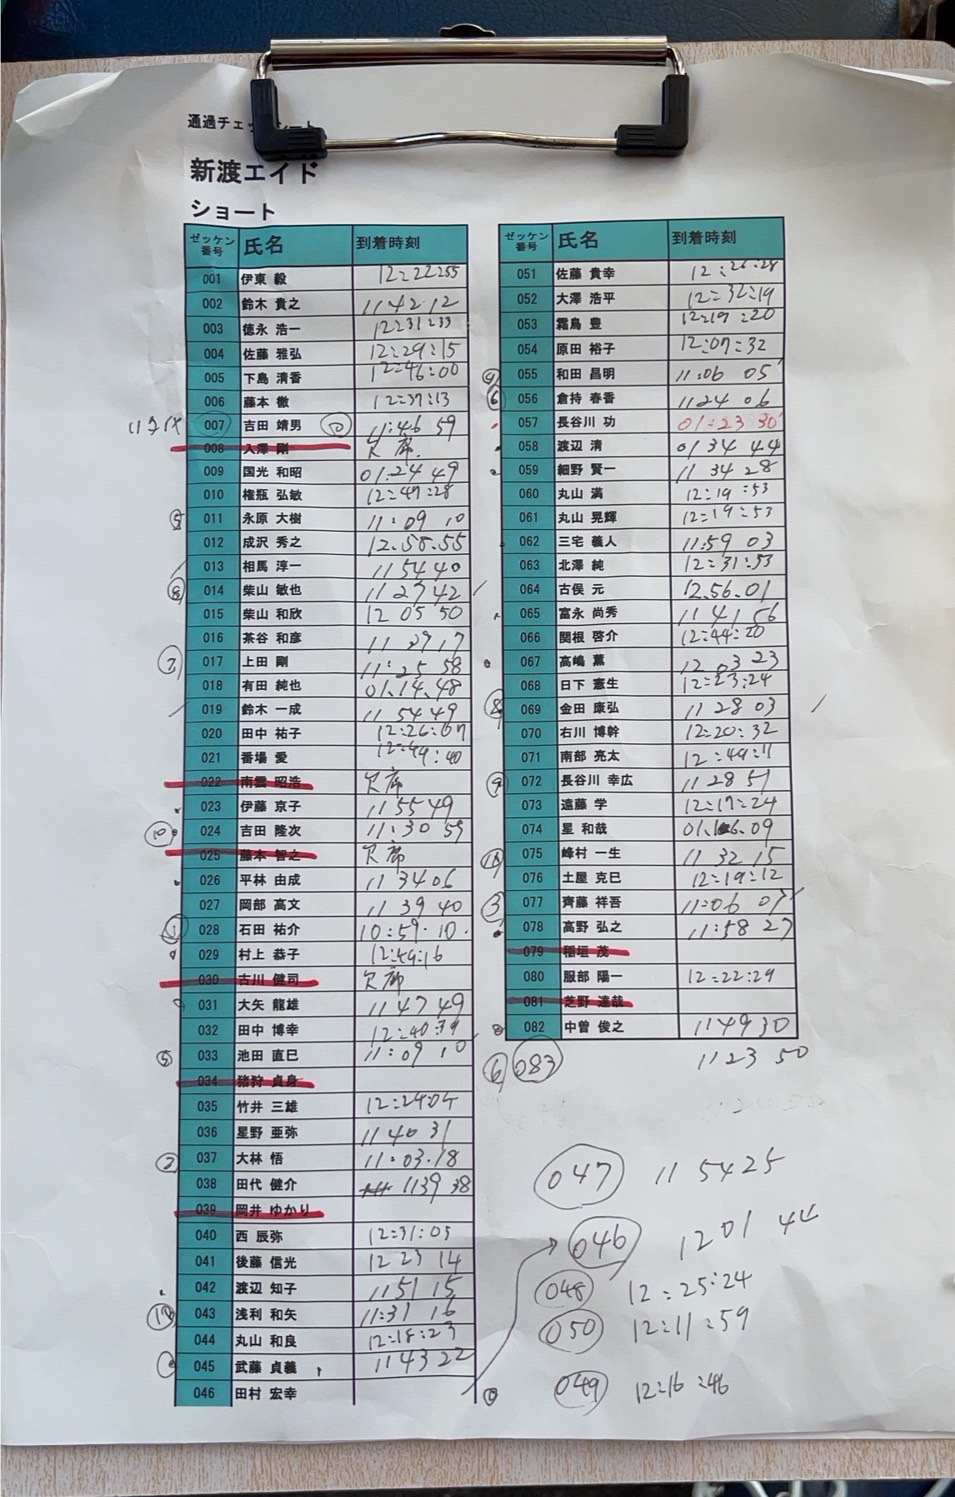 通過チェックシート
新渡エイド
ショート
ゼッケン番号 氏名 到着時刻
001 伊東 毅 12:22:55
002 鈴木 貴之 11 42 12
003 徳永 浩一 12:31:33
004 佐藤 雅弘 12:29:15
005 下島 清香 12:46:00
006 藤本 徹 12:37:13
007 吉田 靖男 11:46 59
008 入澤 剛 欠席
009 国光 和昭 01:24 49
010 権瓶 弘敏 12:47:28
⑤ 011 永原 大樹 11:09 10
012 成沢 秀之 12.58.55
013 相馬 淳一 11 54 40
⑧ 014 柴山 敏也 11 27 42
015 柴山 和欣 12 05 50
016 茶谷 和彦 11 39 17
⑦ 017 上田 剛 11:25 58
018 有田 純也 01.14.48
019 鈴木 一成 11 54 49
020 田中 祐子 12:26:07
021 番場 愛 12:49:40
022 南雲 昭浩 欠席
023 伊藤 京子 11 55 49
⑩ 024 吉田 隆次 11:30 59
025 藤本 智之 欠席
026 平林 由成 11 34 06
027 岡部 高文 11 39 40
① 028 石田 祐介 10:59.10.
029 村上 恭子 12:49:16
030 古川 健司 欠席
031 大矢 龍雄 11 47 49
032 田中 博幸 12:40:39
⑤ 033 池田 直巳 11:09 10
034 猪狩 貞身
035 竹井 三雄 12:24:04
036 星野 亜弥 11 40 31
② 037 大林 悟 11:03.18
038 田代 健介 11 39 38
039 岡井 ゆかり
040 西 辰弥 12:31:05
041 後藤 信光 12 23 14
042 渡辺 知子 11 51 15
043 浅利 和矢 11:31 16
044 丸山 和良 12:18:23
045 武藤 貞義 11 43 22
046 田村 宏幸
ゼッケン番号 氏名 到着時刻
051 佐藤 貴幸 12:26:28
052 大澤 浩平 12:32:19
053 霜鳥 豊 12:19:20
054 原田 裕子 12:07:32
055 和田 昌明 11:06 05
⑥ 056 倉持 春香 11 24 06
057 長谷川 功 01:23 30
058 渡辺 清 01 34 44
059 細野 賢一 11 34 28
060 丸山 満 12:19:53
061 丸山 晃輝 12:19:53
062 三宅 義人 11:59 03
063 北澤 純 12:31:53
064 古俣 元 12.56.01
065 富永 尚秀 11 41 56
066 関根 啓介 12:44:20
067 高嶋 薫 12 03 23
068 日下 憲生 12:23:24
⑧ 069 金田 康弘 11 28 03
070 右川 博幹 12:20:32
071 南部 亮太 12:49:11
⑨ 072 長谷川 幸広 11 28 51
073 遠藤 学 12:17:24
074 星 和哉 01.16.09
075 峰村 一生 11 32 15
076 土屋 克巳 12:19:12
③ 077 齊藤 祥吾 11:06 01
078 高野 弘之 11:58 27
079 稲垣 茂
080 服部 陽一 12:22:29
081 芝野 達哉
082 中曽 俊之 11 49 30
⑥ 083 11 23 50
047 11 54 25
046 12 01 44
048 12:25:24
050 12:11:59
049 12:16:46